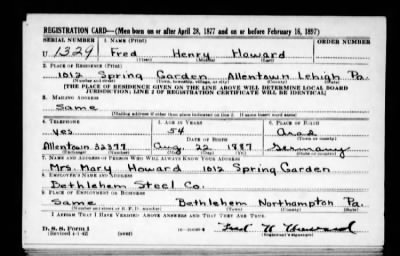 REGISTRATION CARD—(Men born on or after April 28, 1877 and on or before February 16, 1897)
SERIAL NUMBER 1. NAME (Print) ORDER NUMBER
U 1329 Fred Henry Howard
(First) (Middle) (Last)
2. PLACE OF RESIDENCE (Print)
1012 Spring Garden, Allentown Lehigh Pa.
(Number and street) (Town, township, village, or city) (County) (State)
[THE PLACE OF RESIDENCE GIVEN ON THE LINE ABOVE WILL DETERMINE LOCAL BOARD
JURISDICTION; LINE 2 OF REGISTRATION CERTIFICATE WILL BE IDENTICAL]
3. MAILING ADDRESS
Same
[Mailing address if other than place indicated on line 2. If same insert word same]
4. TELEPHONE 5. AGE IN YEARS 6. PLACE OF BIRTH
yes 54
DATE OF BIRTH
Allentown 32377 Aug. 22 1887 Germany
7. NAME AND ADDRESS OF PERSON WHO WILL ALWAYS KNOW YOUR ADDRESS
Mrs. Mary Howard 1012 Spring Garden
8. EMPLOYER'S NAME AND ADDRESS
Bethlehem Steel Co.
9. PLACE OF EMPLOYMENT OR BUSINESS
Same Bethlehem Northampton Pa.
(Number and street or R. F. D. number) (Town) (County) (State)
I AFFIRM THAT I HAVE VERIFIED ABOVE ANSWERS AND THAT THEY ARE TRUE.
D. S. S. Form 1
(Revised 4-1-42) (over)
(Registrant's signature)